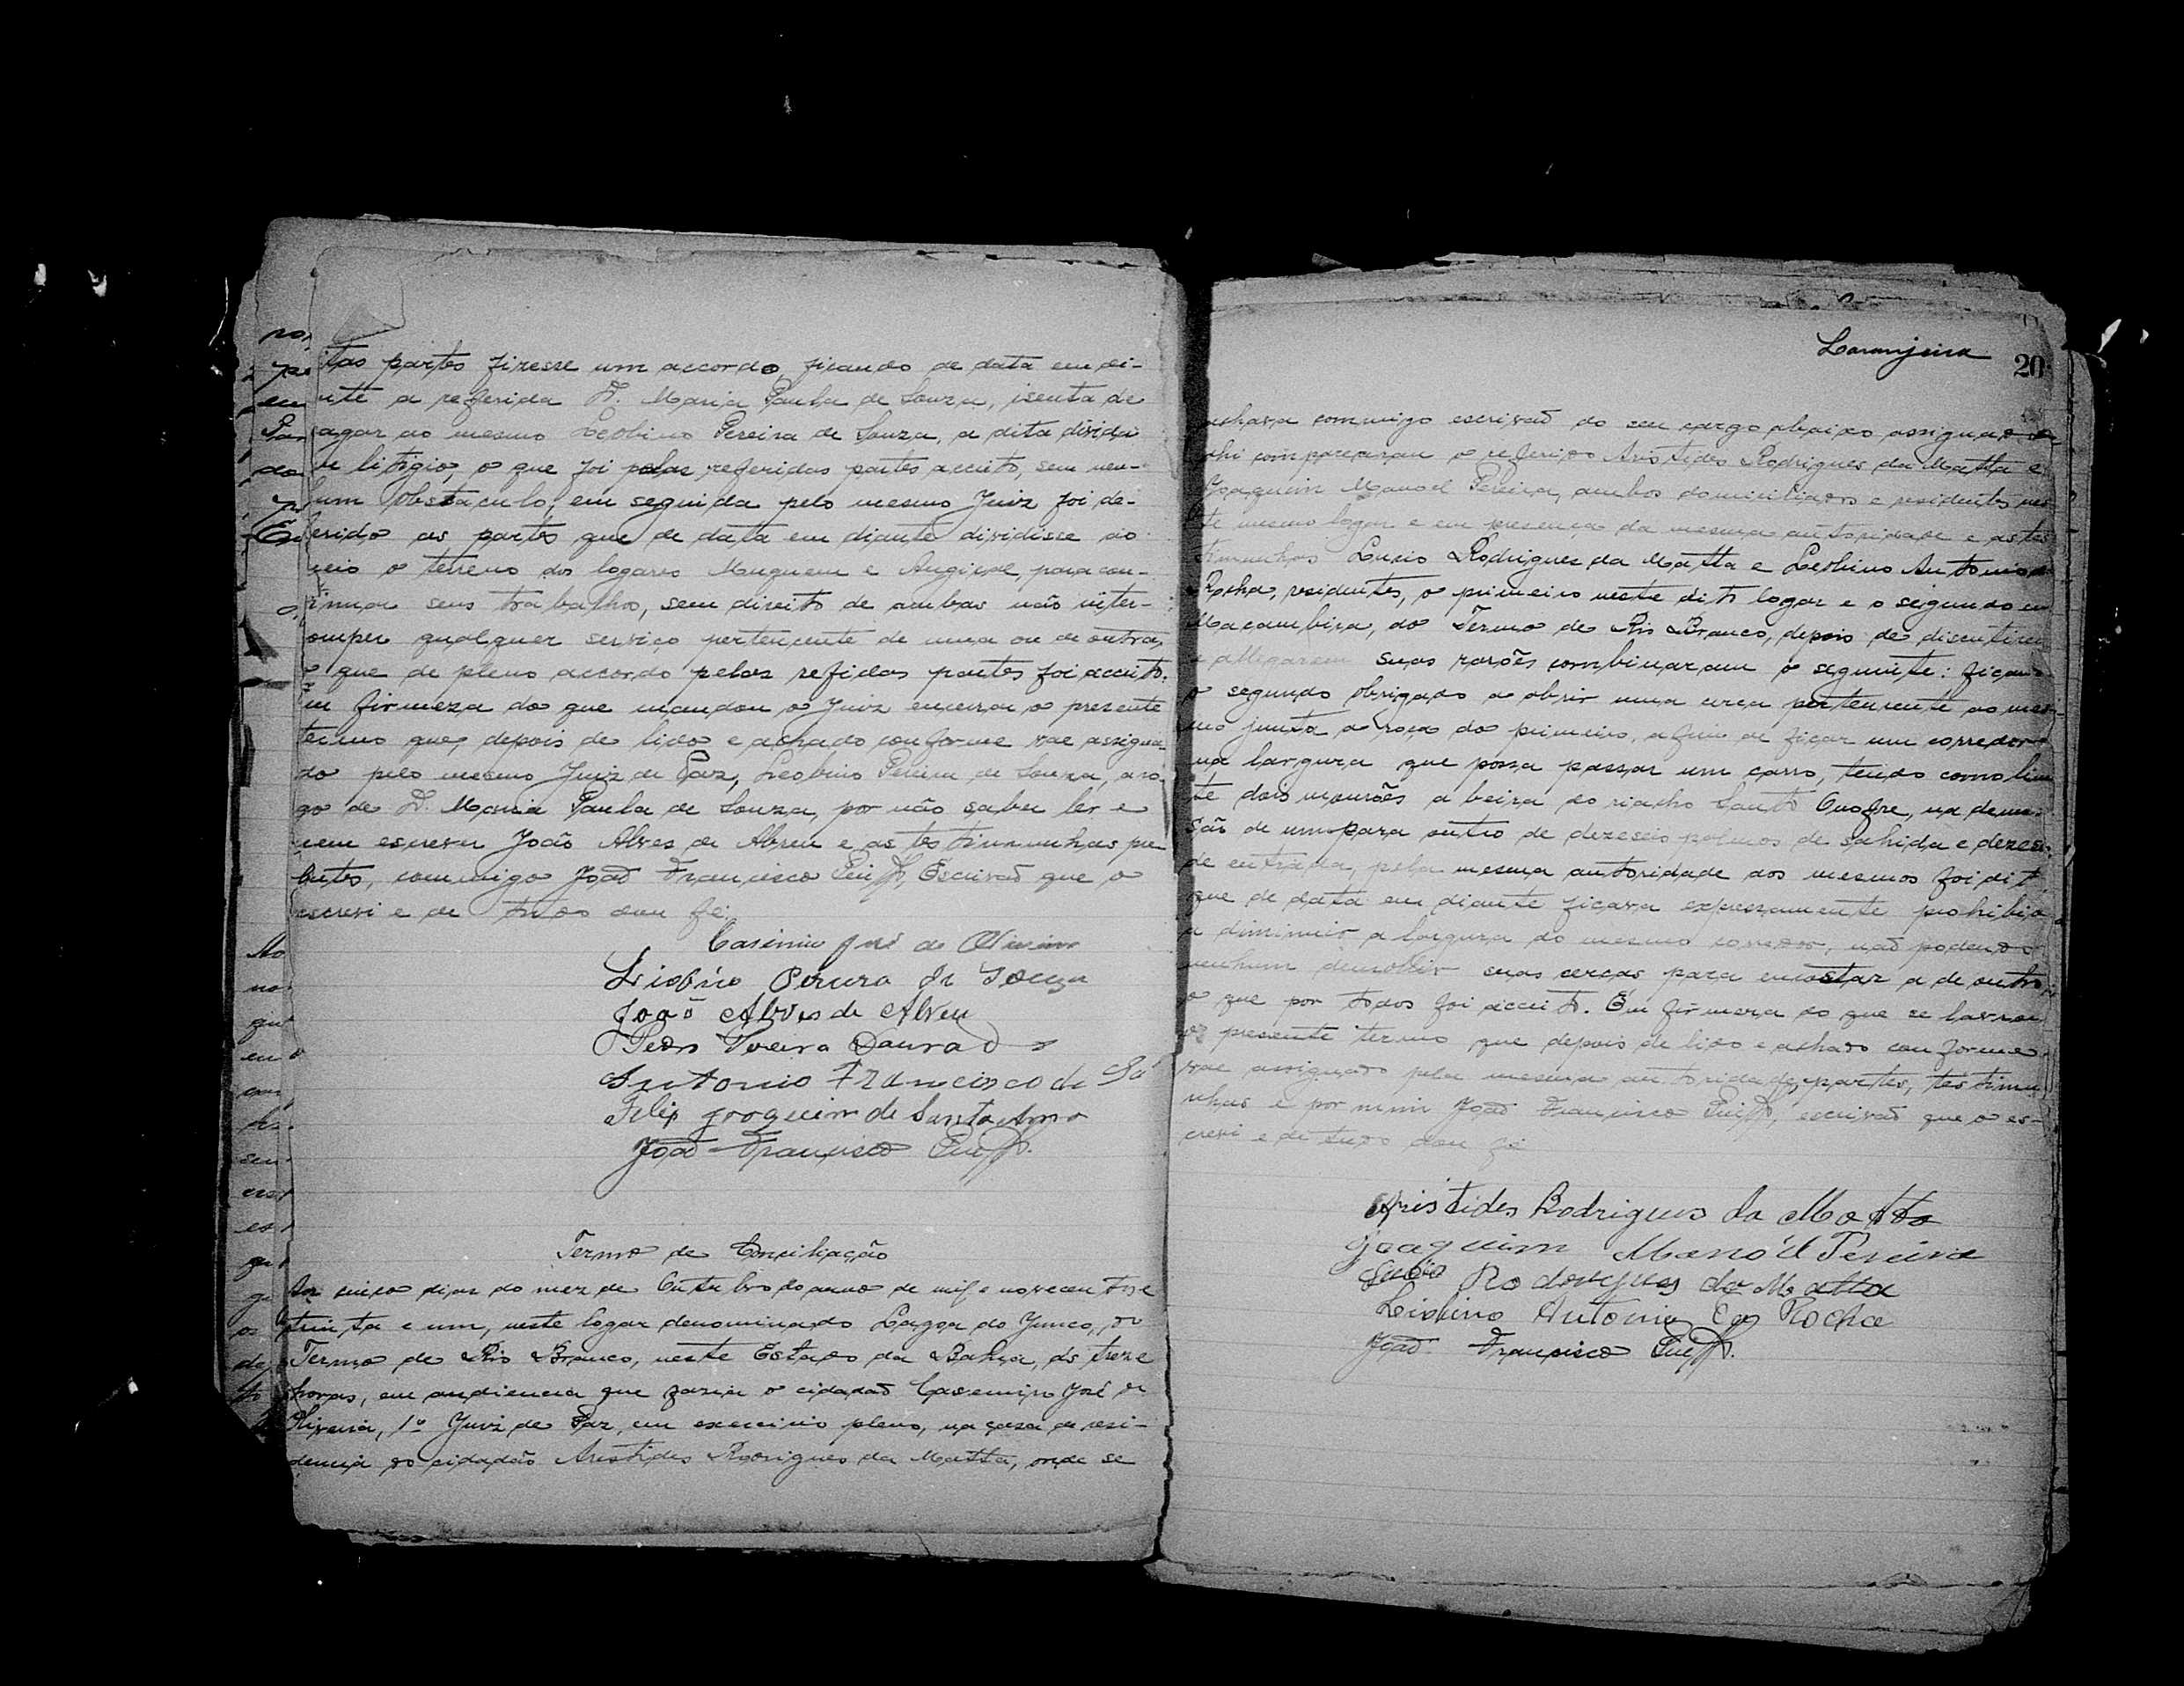 itas partes fizesse um accordo, ficando de data em di-
nte a referida D. Maria Paula de Souza, isenta de
agar ao mesmo Leobino Pereira de Souza, a dita divida
litigio, o que foi pelas referidas partes acceito, sem nen-
hum obstaculo; em seguida pelo mesmo Juiz foi de-
erido as partes que de data em diante dividisse ao
meio o terreno dos logares Muquem e Angical, para con-
tinuar seus trabalhos, sem direito de ambas não inter-
omper qualquer serviço pertencente de uma ou de outra,
o que de pleno accordo pelas refidas partes foi acceito.
Em firmeza do que mandou o Juiz encerrar o presente
termo que, depois de lido e achado conforme vae assigna-
do pelo mesmo Juiz de Paz, Leobino Pereira de Souza, a ro-
go de D. Maria Paula de Souza, por não saber ler e
nem escrever João Alves de Abreu e as testimunhas pre-
entes, commigo João Francisco Escrivaõ que o
escrevi e de tudo dou fé.
Casimiro José de Oliveira
Liobino Pereira de Souza
João Alves de Abreu
Pedro Pereira Dourado
Antonio Francisco de Sá
Felix Joaquim de Santa Anna
João Francisco
Termo de Conciliação
Aos cinco dias do mez de Outubro do anno de mil e novecentos e
trinta e um, neste logar denominado Lagoa do Junco, do
Termo de Rio Branco, neste Estado da Bahia, ás treze
horas, em audiencia que fazia o cidadaõ Casemiro José de
Oliveira, 1º Juiz de Paz, em exercicio pleno, na casa de resi-
dencia do cidadão Aristides Rodrigues da Matta, onde se
Laranjeira
20
achava commigo escrivaõ do seu cargo abaixo assignado
ahi compareceram o referido Aristides Rodrigues da Matta e
Joaquim Manoel Pereira, ambos domiciliados e residentes nes
te mesmo logar e em presença da mesma autoridade e as tes
timunhas Lucio Rodrigues da Matta e Leobino Antonio da
Rocha, residentes, o primeiro neste dito logar e o segundo em
Macambira, do Termo de Rio Branco, depois de discutirem
e allegarem suas rasões combinaram o seguinte: ficando
o segundo obrigado a abrir uma cerca pertencente ao mes-
mo junta a roça do primeiro, afim de ficar um corredor
na largura que possa passar um carro, tendo como limi
te dois mourões a beira do riacho Santo Onofre, na demen-
são de um para outro de dezeseis palmos de sahida e dezeseis
de entrada, pela mesma autoridade aos mesmos foi dito
que de data em diante ficava expressamente prohibido
a diminuir a largura do mesmo corredor, naõ podendo
nenhum demolhir suas cercas para encostar a de outro,
o que por todos foi acceito. Em firmeza do que se lavrou
o presente termo que depois de lido e achado conforme
vae assignado pela mesma autoridade, partes, testimu
nhas e por mim João Francisco escrivaõ que o es-
crevi e de tudo dou fé
Aristides Rodrigues da Motta
Joaquim Manoél Pereira
Lucio Rodrigues da Matta
Liobino Antonio da Rocha
João Francisco